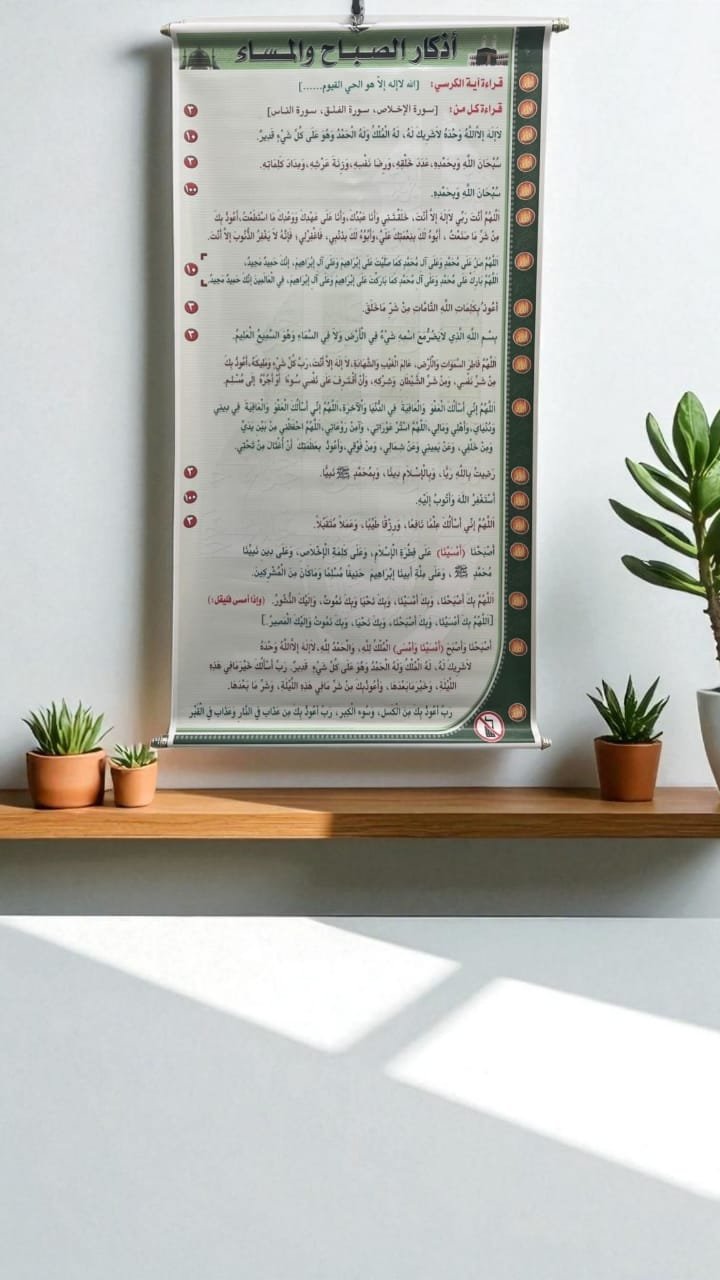 أذكار الصباح والمساء
قراءة آية الكرسي: [الله لاإله إلاّ هو الحي القيوم......]
قراءة كل من: [سورة الإخلاص، سورة الفلق، سورة الناس] ٣
لاَإلَهَ إلاَّاللَّهُ وَحْدَهُ لاَشَرِيكَ لَهُ، لَهُ الْمُلْكُ وَلَهُ الْحَمْدُ وَهُوَ عَلَى كُلِّ شَيْءٍ قَدِيرٌ. ١٠
سُبْحَانَ اللَّهِ وَبِحَمْدِهِ،عَدَدَ خَلْقِهِ،وَرِضَا نَفْسِهِ،وَزِنَةَ عَرْشِهِ،وَمِدَادَ كَلِمَاتِهِ. ٣
سُبْحَانَ اللَّهِ وَبِحَمْدِهِ. ١٠٠
اللَّهُمَّ أَنْتَ رَبِّي لاَإلَهَ إلاَّ أَنْتَ، خَلَقْتَنِي وَأَنَا عَبْدُكَ،وَأَنَا عَلَى عَهْدِكَ وَوَعْدِكَ مَا اسْتَطَعْتُ،أَعُوذُ بِكَ
مِنْ شَرِّ مَا صَنَعْتُ ، أَبُوءُ لَكَ بِنِعْمَتِكَ عَلَيَّ،وَأَبُوءُ لَكَ بِذَنْبِي، فَاغْفِرْلِي؛ فَإِنَّهُ لاَ يَغْفِرُ الذُّنُوبَ إلاَّ أَنْتَ.
اللَّهُمَّ صَلِّ عَلَى مُحَمَّدٍ وَعَلَى آلِ مُحَمَّدٍ كَمَا صَلَّيْتَ عَلَى إبْرَاهِيمَ وَعَلَى آلِ إبْرَاهِيمَ، إنَّكَ حَمِيدٌ مَجِيدٌ، ١٠
اللَّهُمَّ بَارِكْ عَلَى مُحَمَّدٍ وَعَلَى آلِ مُحَمَّدٍ كَمَا بَارَكْتَ عَلَى إبْرَاهِيمَ وَعَلَى آلِ إبْرَاهِيمَ، فِي الْعَالَمِينَ إنَّكَ حَمِيدٌ مَجِيدٌ.
أَعُوذُ بِكَلِمَاتِ اللَّهِ التَّامَّاتِ مِنْ شَرِّ مَاخَلَقَ. ٣
بِسْمِ اللَّهِ الَّذِي لاَيَضُرُّمَعَ اسْمِهِ شَيْءٌ فِي الأَرْضِ وَلاَ فِي السَّمَاءِ وَهُوَ السَّمِيعُ الْعَلِيمُ. ٣
اللَّهُمَّ فَاطِرَ السَّمَوَاتِ وَالأَرْضِ، عَالِمَ الْغَيْبِ وَالشَّهَادَةِ،لاَ إلَهَ إلاَّ أَنْتَ،رَبَّ كُلِّ شَيْءٍ وَمَلِيكَهُ،أَعُوذُ بِكَ
مِنْ شَرِّ نَفْسِي، وَمِنْ شَرِّ الشَّيْطَانِ وَشِرْكِهِ، وَأَنْ أَقْتَرِفَ عَلَى نَفْسِي سُوءًا أَوْ أَجُرَّهُ إلَى مُسْلِمٍ.
اللَّهُمَّ إنِّي أَسْأَلُكَ الْعَفْوَ وَالْعَافِيَةَ فِي الدُّنْيَا وَالآخِرَةِ،اللَّهُمَّ إنِّي أَسْأَلُكَ الْعَفْوَ وَالْعَافِيَةَ فِي دِينِي
وَدُنْيَايَ،وَأَهْلِي وَمَالِي،اللَّهُمَّ اسْتُرْ عَوْرَاتِي، وَآمِنْ رَوْعَاتِي،اللَّهُمَّ احْفَظْنِي مِنْ بَيْنِ يَدَيَّ
وَمِنْ خَلْفِي، وَعَنْ يَمِينِي وَعَنْ شِمَالِي، وَمِنْ فَوْقِي،وَأَعُوذُ بِعَظَمَتِكَ أَنْ أُغْتَالَ مِنْ تَحْتِي.
رَضِيتُ بِاللَّهِ رَبًّا، وَبِالإِسْلاَمِ دِينًا، وَبِمُحَمَّدٍ ﷺ نَبِيًّا. ٣
أَسْتَغْفِرُ اللَّهَ وَأَتُوبُ إلَيْهِ. ١٠٠
اللَّهُمَّ إنِّي أَسْأَلُكَ عِلْمًا نَافِعًا، وَرِزْقًا طَيِّبًا، وَعَمَلاً مُتَقَبَّلاً. ٣
أَصْبَحْنَا (أَمْسَيْنَا) عَلَى فِطْرَةِ الإِسْلاَمِ، وَعَلَى كَلِمَةِ الإِخْلاَصِ، وَعَلَى دِينِ نَبِيِّنَا
مُحَمَّدٍ ﷺ ، وَعَلَى مِلَّةِ أَبِينَا إبْرَاهِيمَ حَنِيفًا مُسْلِمًا وَمَاكَانَ مِنَ الْمُشْرِكِينَ.
اللَّهُمَّ بِكَ أَصْبَحْنَا، وَبِكَ أَمْسَيْنَا، وَبِكَ نَحْيَا وَبِكَ نَمُوتُ، وَإلَيْكَ النُّشُورُ. (وإذا أمسى فليقل:)
[اللَّهُمَّ بِكَ أَمْسَيْنَا، وَبِكَ أَصْبَحْنَا، وَبِكَ نَحْيَا، وَبِكَ نَمُوتُ وَإلَيْكَ الْمَصِيرُ.]
أَصْبَحْنَا وَأَصْبَحَ (أَمْسَيْنَا وَأَمْسَى) الْمُلْكُ لِلَّهِ، وَالْحَمْدُ لِلَّهِ،لاَإلَهَ إلاَّاللَّهُ وَحْدَهُ
لاَشَرِيكَ لَهُ، لَهُ الْمُلْكُ وَلَهُ الْحَمْدُ وَهُوَ عَلَى كُلِّ شَيْءٍ قَدِيرٌ. رَبِّ أَسْأَلُكَ خَيْرَمَافِي هَذِهِ
اللَّيْلَةِ، وَخَيْرَمَابَعْدَهَا، وَأَعُوذُبِكَ مِنْ شَرِّ مَافِي هَذِهِ اللَّيْلَةِ، وَشَرِّ مَا بَعْدَهَا.
رَبِّ أَعُوذُ بِكَ مِنَ الْكَسَلِ، وَسُوءِ الْكِبَرِ، رَبِّ أَعُوذُ بِكَ مِنْ عَذَابٍ فِي النَّارِ وَعَذَابٍ فِي الْقَبْرِ